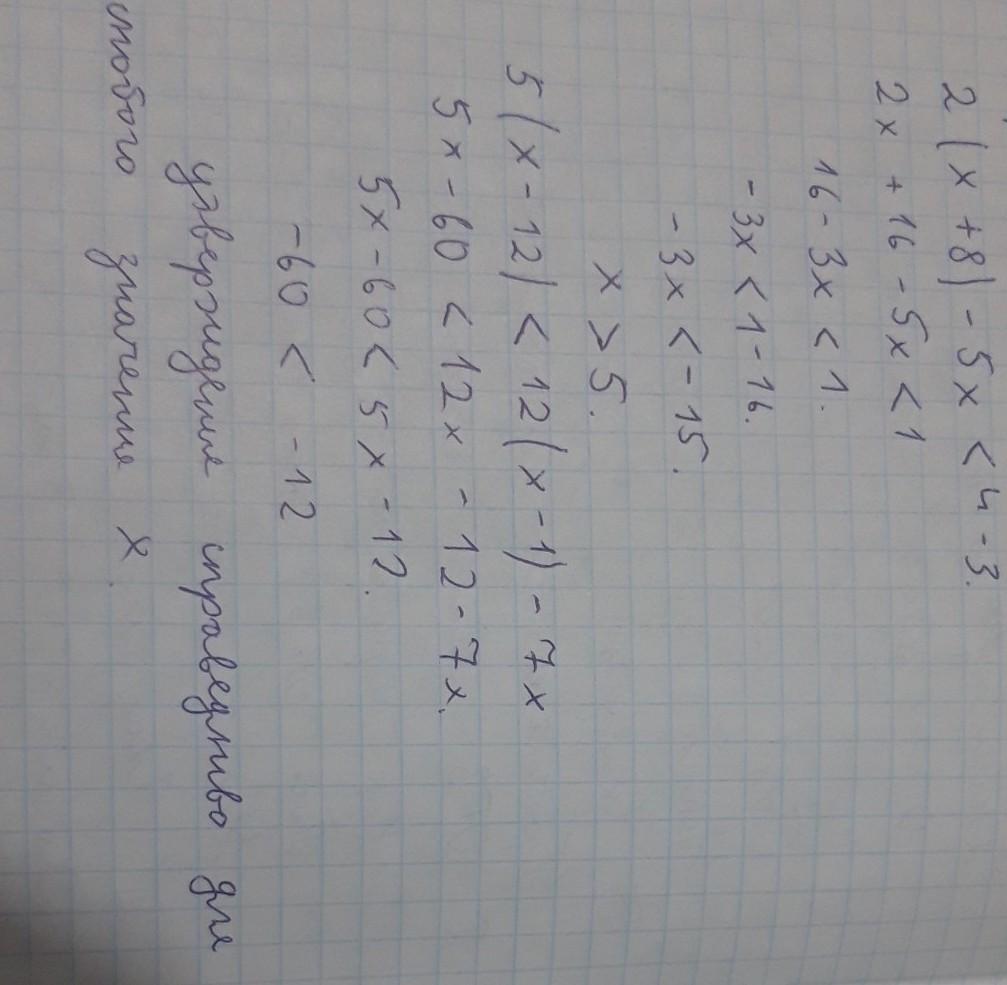 2(x+8) - 5x < 4-3.
2x + 16 - 5x < 1
16 - 3x < 1.
-3x < 1-16.
-3x < -15.
x > 5.
5(x-12) < 12(x-1) - 7x
5x - 60 < 12x - 12 - 7x.
5x - 60 < 5x - 12.
-60 < -12
утверждение справедливо для
любого значения x.